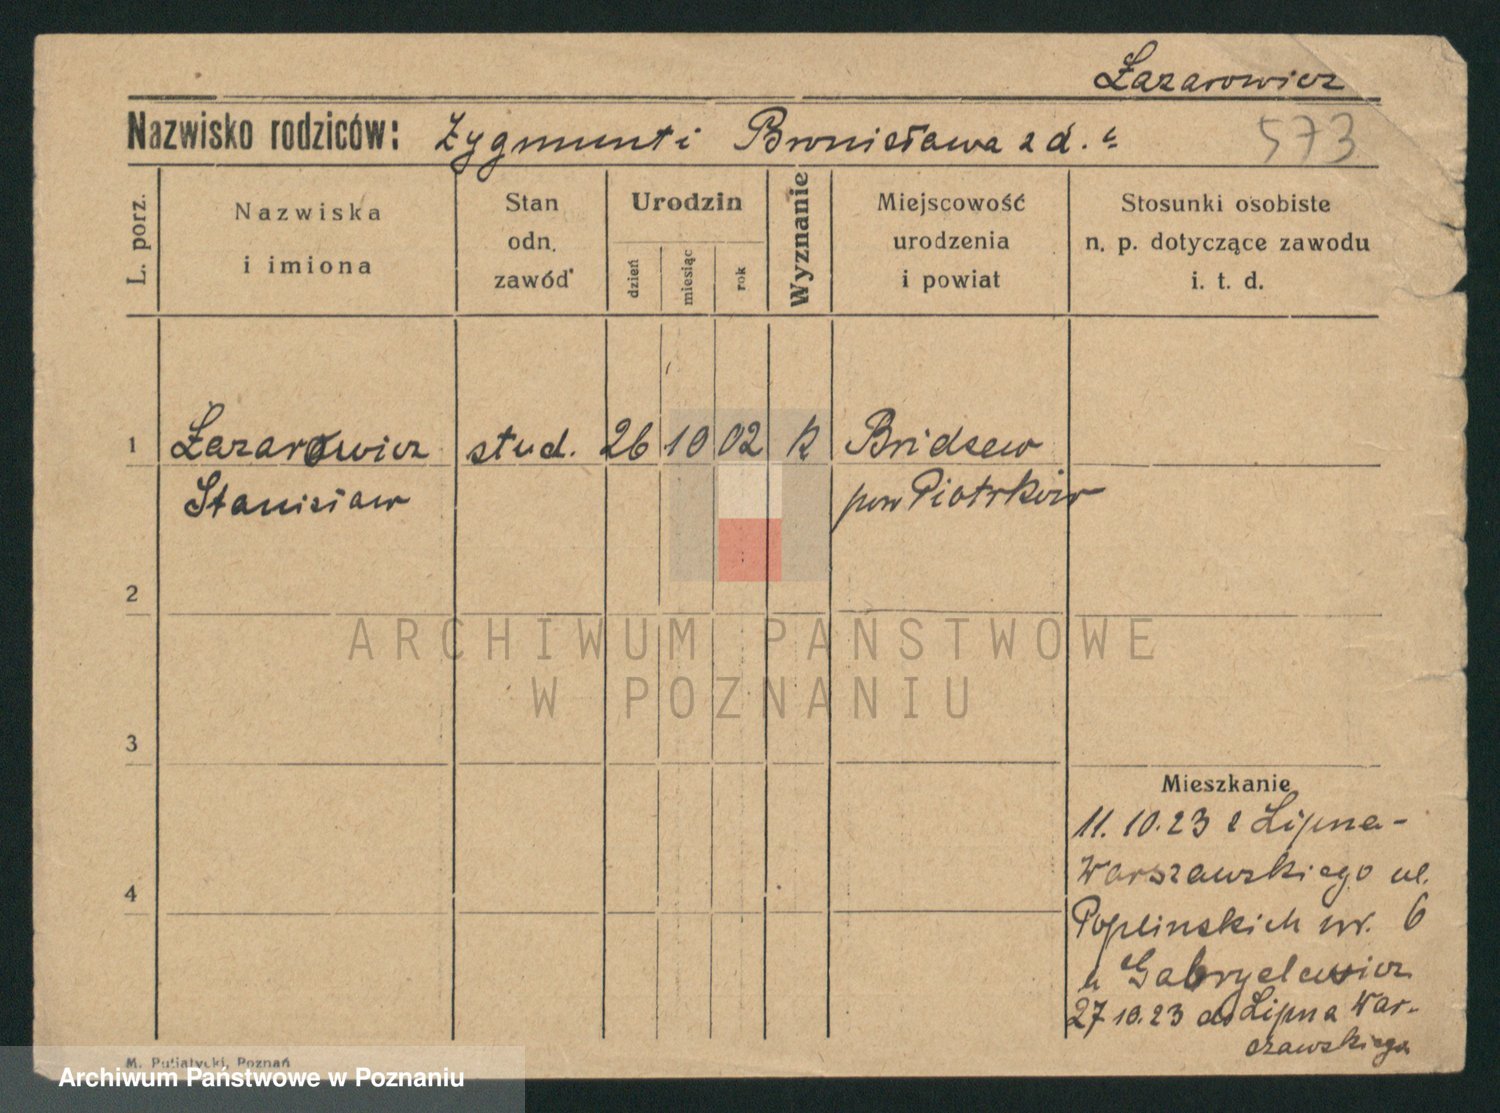 Łazarowicz
Nazwisko rodziców: Zygmunt i Bronisława z d.
573
L. porz.
Nazwiska
i imiona
Stan
odn.
zawód
Urodzin
dzień
miesiąc
rok
Wyznanie
Miejscowość
urodzenia
i powiat
Stosunki osobiste
n. p. dotyczące zawodu
i. t. d.
1 Łazarowicz stud. 26 10 02 k Bridsew
Stanisław pow Piotrków
2
3
4
Mieszkanie
11. 10. 23 z Lipna-
Warszawskiego ul.
Poplinskich nr. 6
u Gabryelewicz
27 10. 23 do Lipna War-
szawskiego
M. Putiatycki, Poznań
ARCHIWUM PAŃSTWOWE
W POZNANIU
Archiwum Państwowe w Poznaniu